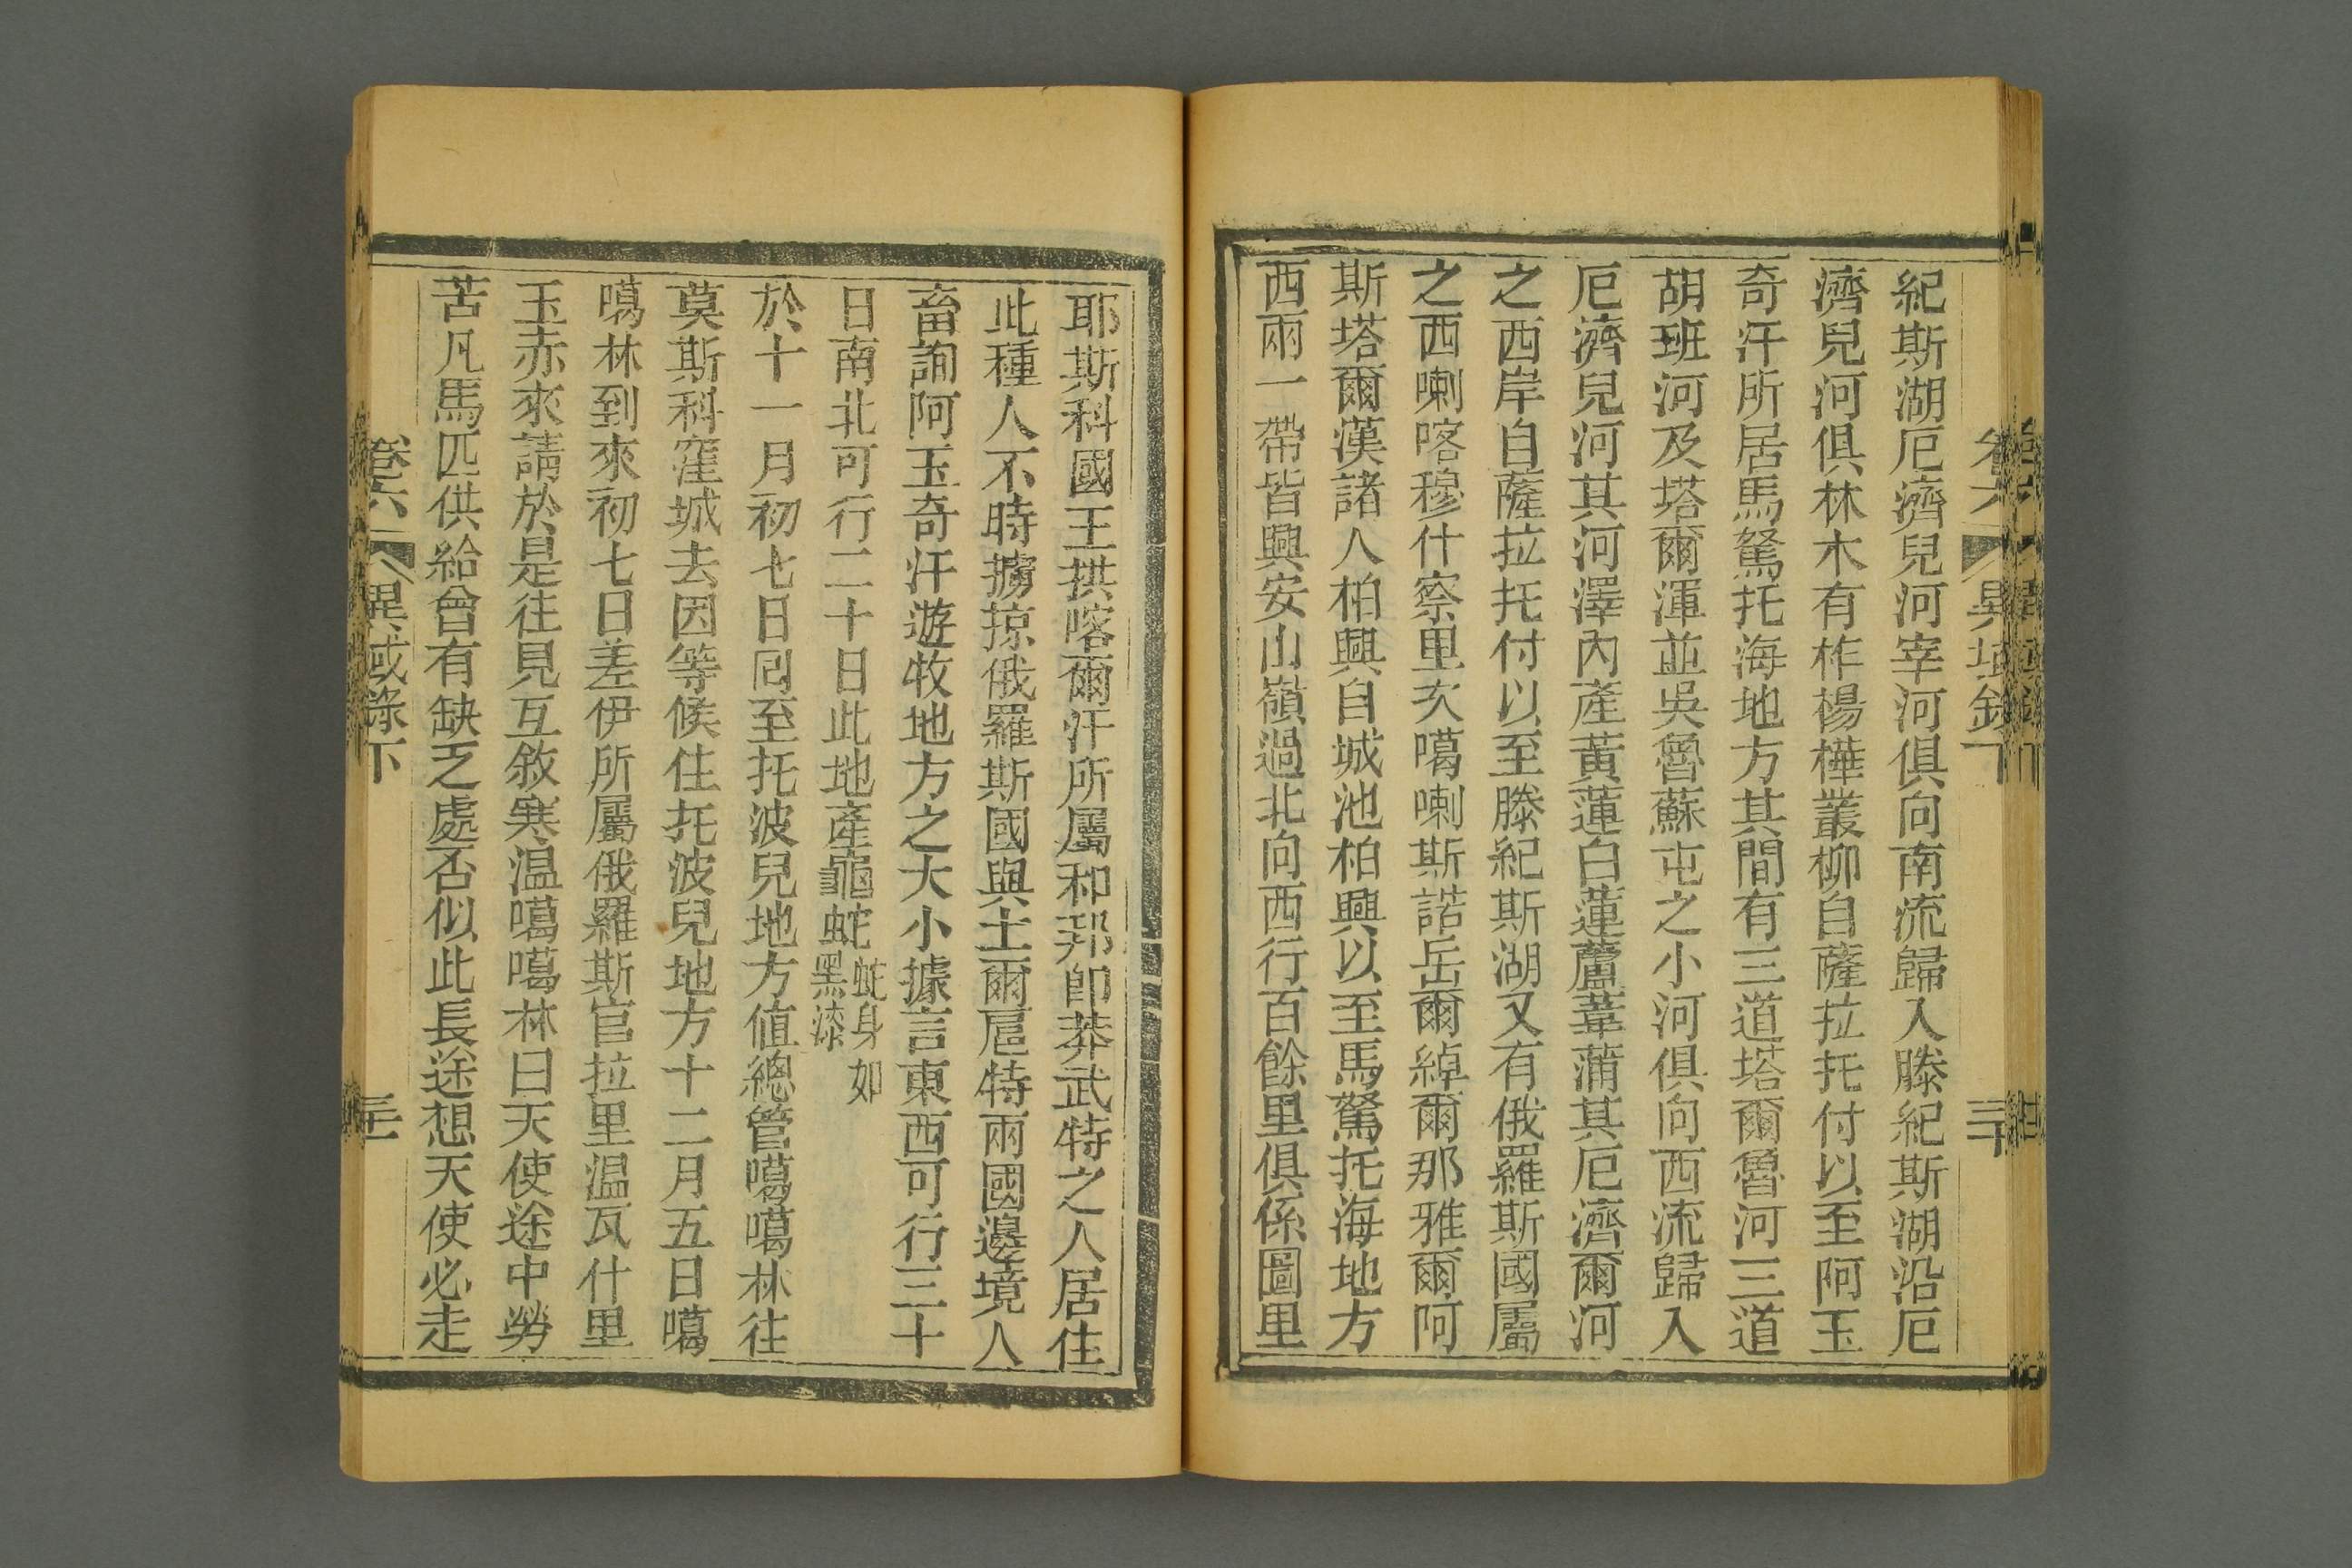 紀斯湖厄濟兒河宰河俱向南流歸入滕紀斯湖沿厄
濟兒河俱林木有柞楊樺叢柳自薩拉托付以至阿玉
奇汗所居馬駑托海地方其間有三道塔爾魯河三道
胡班河及塔爾渾並吳魯蘇屯之小河俱向西流歸入
厄濟兒河其河澤內產黃蓮白蓮蘆葦蒲其厄濟爾河
之西岸自薩拉托付以至滕紀斯湖又有俄羅斯國屬
之西喇喀穆什察里次噶喇斯諾岳爾綽爾那雅爾阿
斯塔爾漢諸人柏興自城池柏興以至馬駑托海地方
西兩一帶皆興安山嶺過北向西行百餘里俱係圖里
卷六
異域錄下
三十
耶斯科國王拱喀爾汗所屬和邦即莽武特之人居住
此種人不時擄掠俄羅斯國與土爾扈特兩國邊境人
畜詢阿玉奇汗遊牧地方之大小據言東西可行三十
日南北可行二十日此地產龜蛇蛇身如黑漆
於十一月初七日囘至托波兒地方值總管噶噶林往
莫斯科窪城去因等候住托波兒地方十二月五日噶
噶林到來初七日差伊所屬俄羅斯官拉里溫瓦什里
玉赤來請於是往見互敘寒溫噶噶林曰天使途中勞
苦凡馬匹供給曾有缺乏處否似此長途想天使必走
卷六
異域錄下